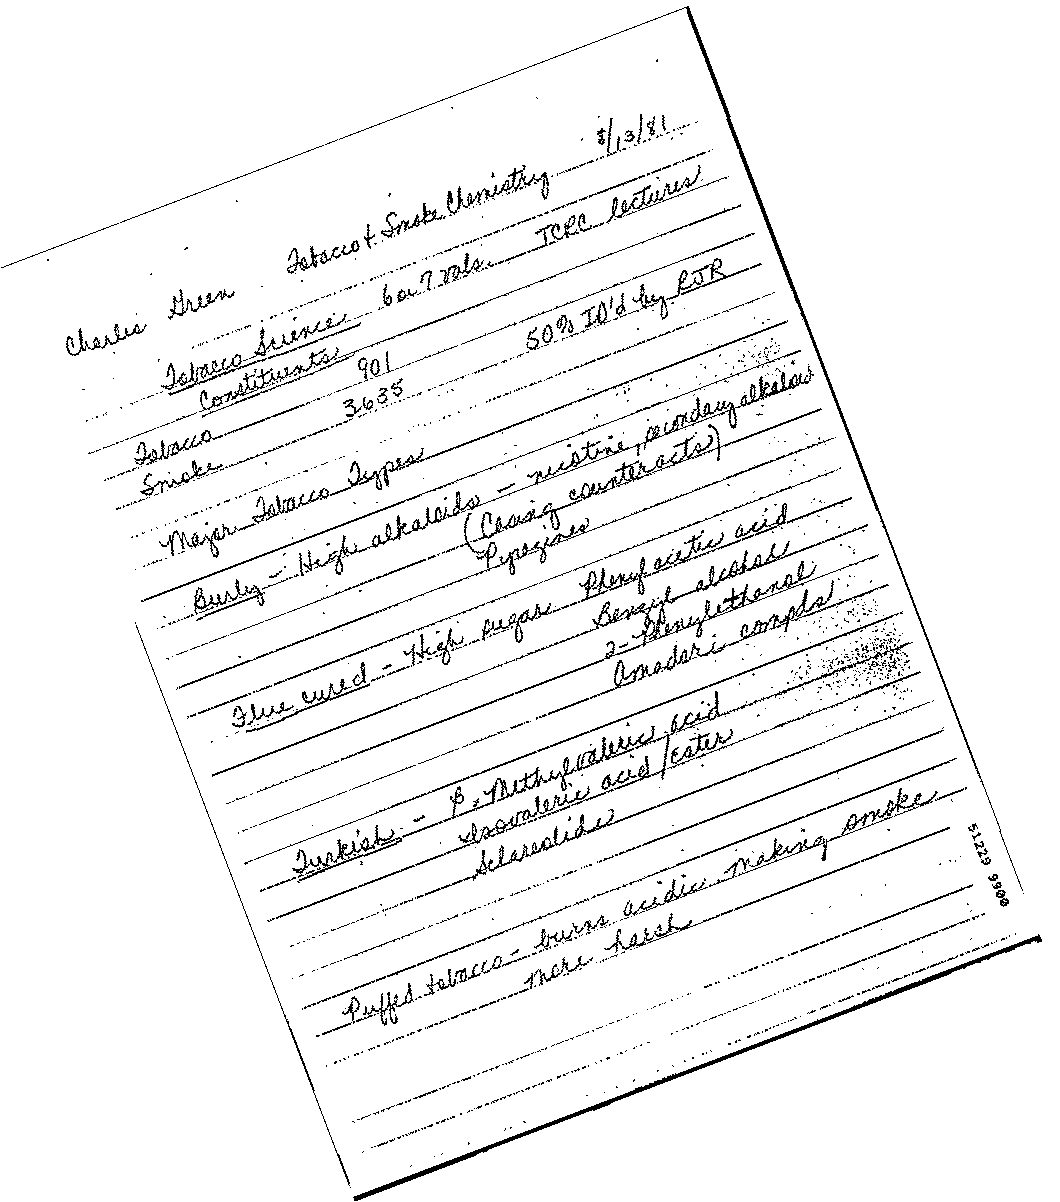 8/13/81
Charles Green Tobacco & Smoke Chemistry
Tobacco Science 6 or 7 vols. TCRC lectures
Constituents
Tobacco 901 50% ID'd by RJR
Smoke 3635
Major Tobacco Types
Burly - High alkaloids - nicotine, secondary alkaloids
(Casing counteracts)
Pyrazines
Flue cured - High sugar Phenylacetic acid
Benzyl alcohol
2-Phenylethanol
Amadori compds
Turkish - β-Methylvaleric acid
Isovaleric acid/ester
Sclareolide
Puffed tobacco - burns acidic making smoke
more harsh
51229 9900